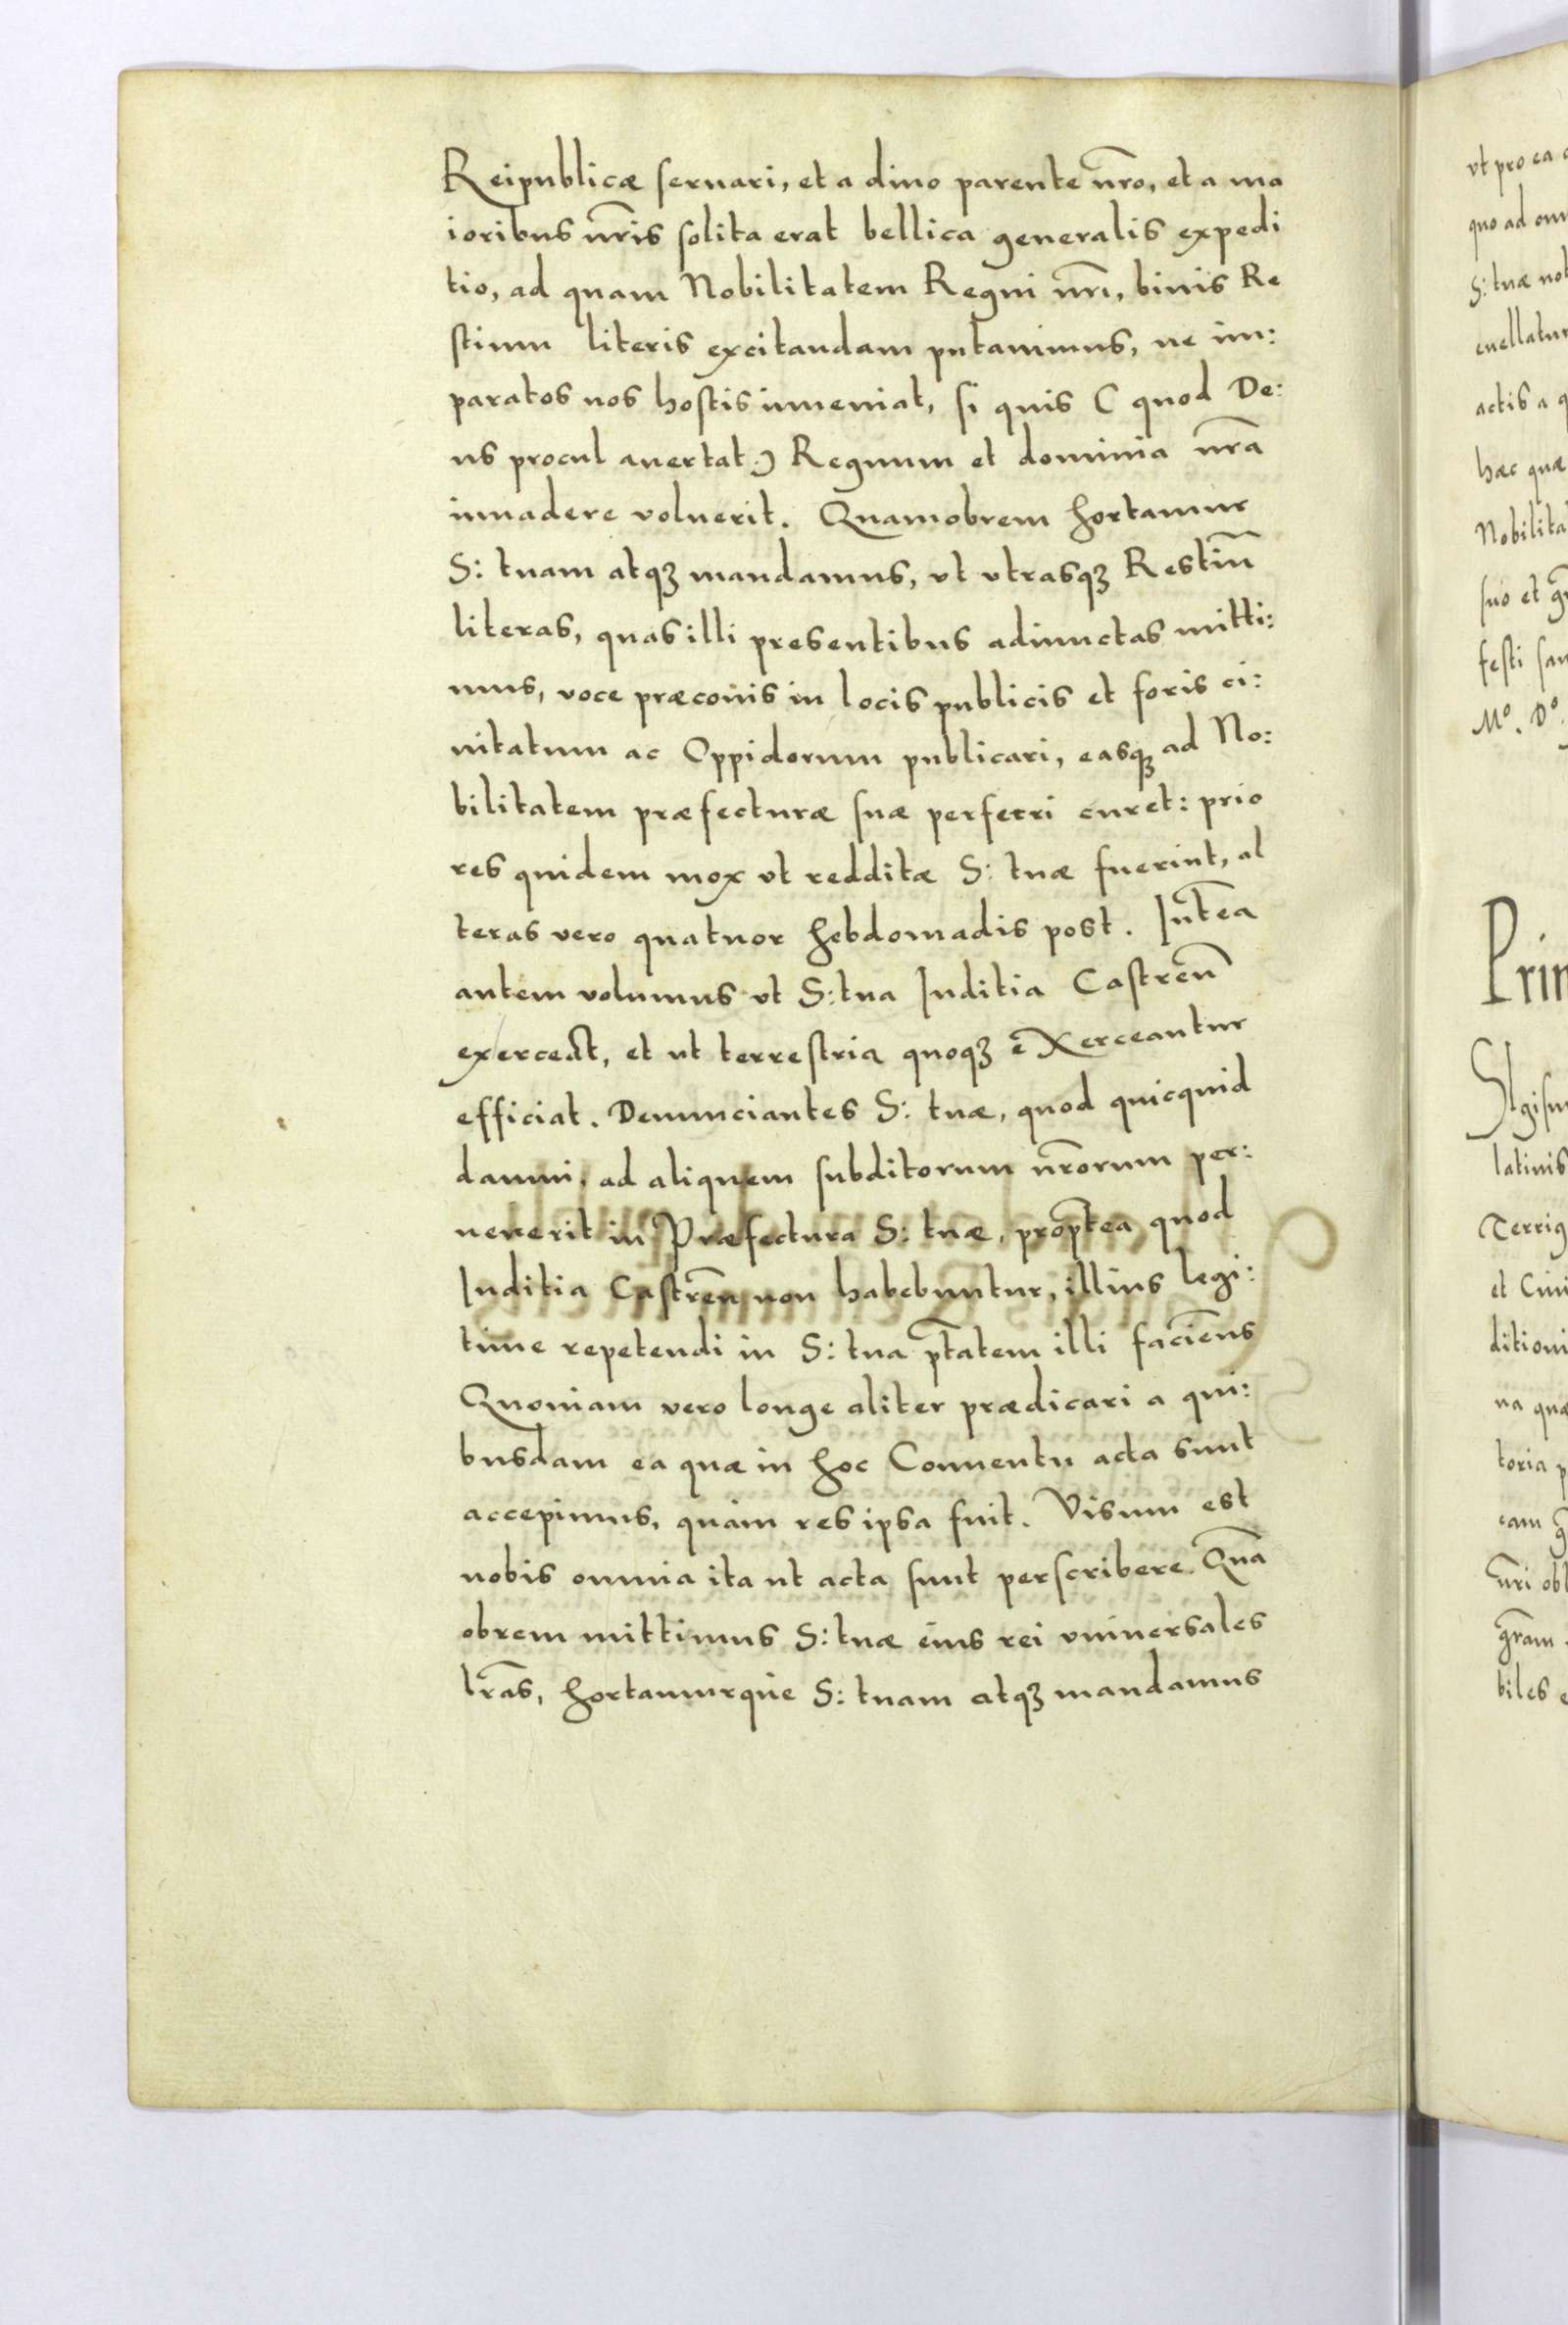 Reipublicæ seruari, et a diuo parente nr̃o, et a ma
ioribus nr̃is solita erat bellica generalis expedi
tio, ad quam Nobilitatem Regni nr̃i, binis Re
stium literis excitandam putauimus, ne im:
paratos nos hostis inueniat, si quis ( quod De:
us procul auertat.) Regnum et dominia nr̃a
inuadere voluerit. Quamobrem hortamur
S: tuam atqꝫ mandamus, vt vtrasqꝫ Restiũ
literas, quas illi presentibus adiunctas mitti:
mus, voce præconis in locis publicis et foris ci:
uitatum ac Oppidorum publicari, easqꝫ ad No:
bilitatem præfecturæ suæ perferri curet: prio
res quidem mox vt redditæ S: tuæ fuerint, al
teras vero quatuor hebdomadis post. Int̃ea
autem volumus vt S: tua Iuditia Castreñ
exerceat, et ut terrestria quoqꝫ eXerceantur
efficiat. Denunciantes S: tuæ, quod quicquid
damni, ad aliquem subditorum nr̃orum per:
uenerit in Præfectura S: tuæ, propt̃ea quod
Iuditia Castreñ non habebuntur, illius legi:
time repetendi in S: tua pt̃atem illi faciens
Quoniam vero longe aliter prædicari a qui:
busdam ea quæ in hoc Conuentu acta sunt
accepimus, quam res ipsa fuit. Visum est
nobis omnia ita ut acta sunt perscribere. Quã
obrem mittimus S: tuæ eius rei vniuersales
lr̃as, hortamurque S: tuam atqꝫ mandamus
vt pro ea
quo ad
S: tuæ
actis a
hæc quæ
suo et
festi
Mº. Dº.
latinis
et
na
toria
eam
nr̃i
gr̃am